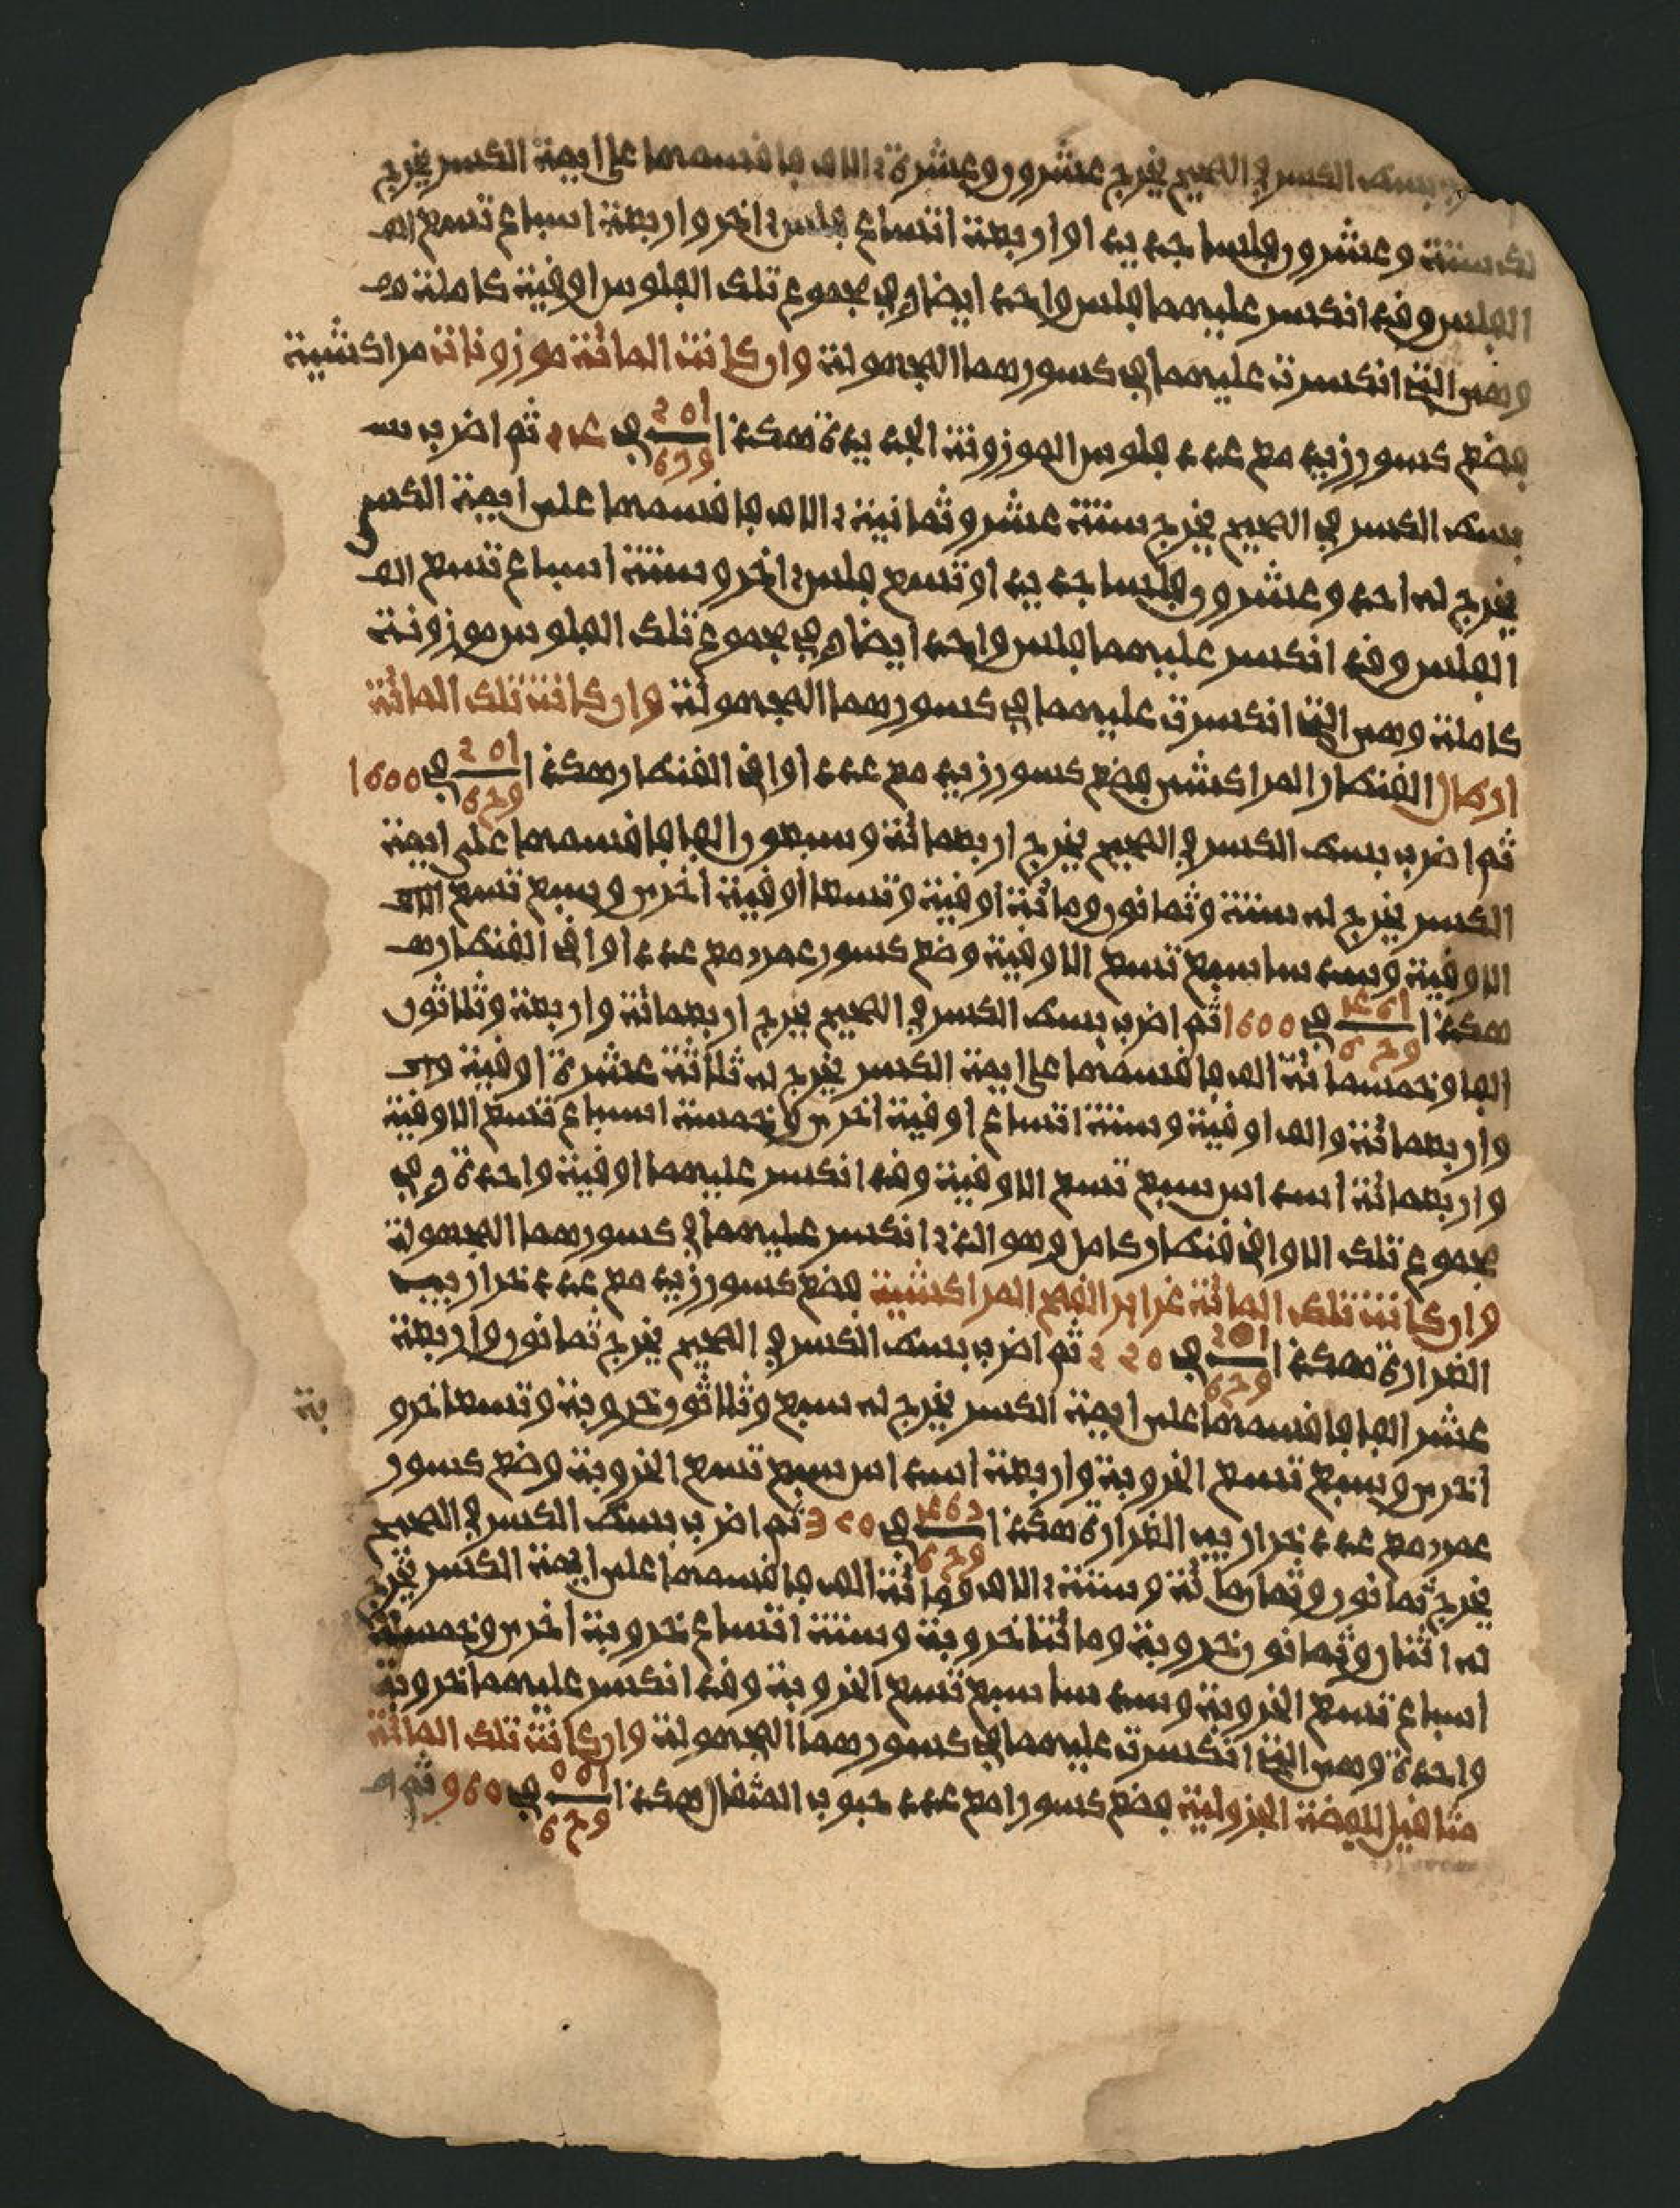 بسط الكسر في الصحيح يخرج عشرون وعشرة ءالاف فاقسمها على ايمة الكسر يخرج
لك ستة وعشرون فلسا جديدا واربعة اتساع فلس ءاخر واربعة اسباع تسع الفـ
الفلس وقد انكسر عليهما فلس واحد ايضا وفي مجموع تلك الفلوس اوقية كاملة وهـ
وهي التي انكسرت عليهما في كسورهما المجهولة وان كانت المائة موزونات مراكشية
فضع كسور زيد مع عدد فلوس الموزونة الجديدة هكذا 201 / 679 في 24 ثم اضرب بسـ
بسط الكسر في الصحيح يخرج ستة عشر وثمانية ءالاف فاقسمها على ايمة الكسر
يخرج له احد وعشرون فلسا جديدا وتسع فلس ءاخر وستة اسباع تسع الفـ
الفلس وقد انكسر عليهما فلس واحد ايضا وفي مجموع تلك الفلوس موزونة
كاملة وهي التي انكسرت عليهما في كسورهما المجهولة وان كانت تلك المائة
ارطال القنطار المراكشي فضع كسور زيد مع عدد اواقي القنطار هكذا 201 / 679 في 1600
ثم اضرب بسط الكسر في الصحيح يخرج اربعمائة وسبعون الفا فاقسمها على ايمة
الكسر يخرج له ستة وثمانون ومائة اوقية وتسعا اوقية اخرى وسبع تسع الاو
الاوقية وسدسا سبع تسع الاوقية وضع كسور عمرو مع عدد اواقي القنطار هـ
هكذا 461 / 679 في 1600 ثم اضرب بسط الكسر في الصحيح يخرج اربعمائة واربعة وثلاثون
الفا وخمسمائة الف فاقسمها على ايمة الكسر يخرج له ثلاثة عشرة اوقية وار
واربعمائة والف اوقية وستة اتساع اوقية اخرى وخمسة اسباع تسع الاوقية
واربعمائة اسداس سبع تسع الاوقية وقد انكسر عليهما اوقية واحدة وفي
مجموع تلك الاواقي قنطار كامل وهو الذي انكسر عليهما في كسورهما المجهولة
وان كانت تلك المائة غراير القمح المراكشية فضع كسور زيد مع عدد خراريب
الغرارة هكذا 201 / 679 في 320 ثم اضرب بسط الكسر في الصحيح يخرج ثمانون واربعة
عشر الفا فاقسمها على ايمة الكسر يخرج له سبع وثلاثون خروبة وتسعا خرو
بة
اخرى وسبع تسع الخروبة واربعة اسداس سبع تسع الخروبة وضع كسور
عمرو مع عدد خراريب الغرارة هكذا 463 / 679 في 320 ثم اضرب بسط الكسر في الصحيح
يخرج ثمانون وثمانمائة وستة ءالاف ومائة الف فاقسمها على ايمة الكسر يخرج
له اثنان وثمانون خروبة ومائتا خروبة وستة اتساع خروبة اخرى وخمسة
اسباع تسع الخروبة وسدسا سبع تسع الخروبة وقد انكسر عليهما خروبة
واحدة وهي التي انكسرت عليهما في كسورهما المجهولة وان كانت تلك المائة
مثاقيل للفضة الجزولية فضع كسورا مع عدد حبوب المثقال هكذا 100 / 679 في 960 ثم اضـ